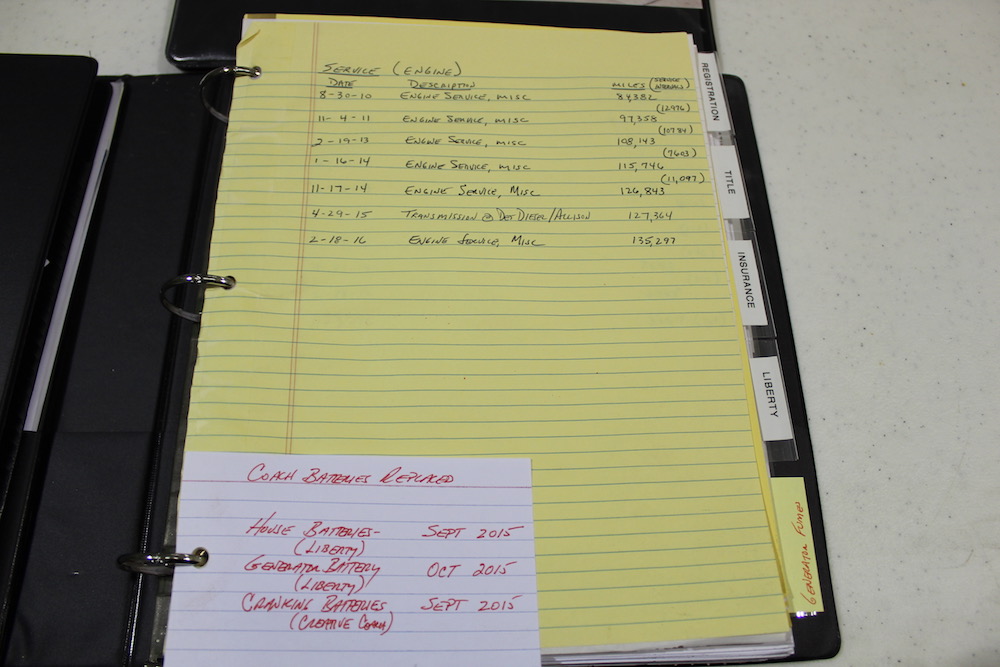 SERVICE (ENGINE)
DATE DESCRIPTION MILES (SERVICE INTERVAL)
8-30-10 ENGINE SERVICE, MISC 84382
(12976)
11-4-11 ENGINE SERVICE, MISC 97,358
(10784)
2-19-13 ENGINE SERVICE, MISC 108,143
(7603)
1-16-14 ENGINE SERVICE, MISC 115,746
(11,097)
11-17-14 ENGINE SERVICE, MISC 126,843
4-29-15 TRANSMISSION @ DET DIESEL/ALLISON 127,364
2-18-16 ENGINE SERVICE, MISC 135,297
COACH BATTERIES REPLACED
HOUSE BATTERIES- SEPT 2015
(LIBERTY)
GENERATOR BATTERY OCT 2015
(LIBERTY)
CRANKING BATTERIES SEPT 2015
(CREATIVE COACH)
REGISTRATION
TITLE
INSURANCE
LIBERTY
GENERATOR